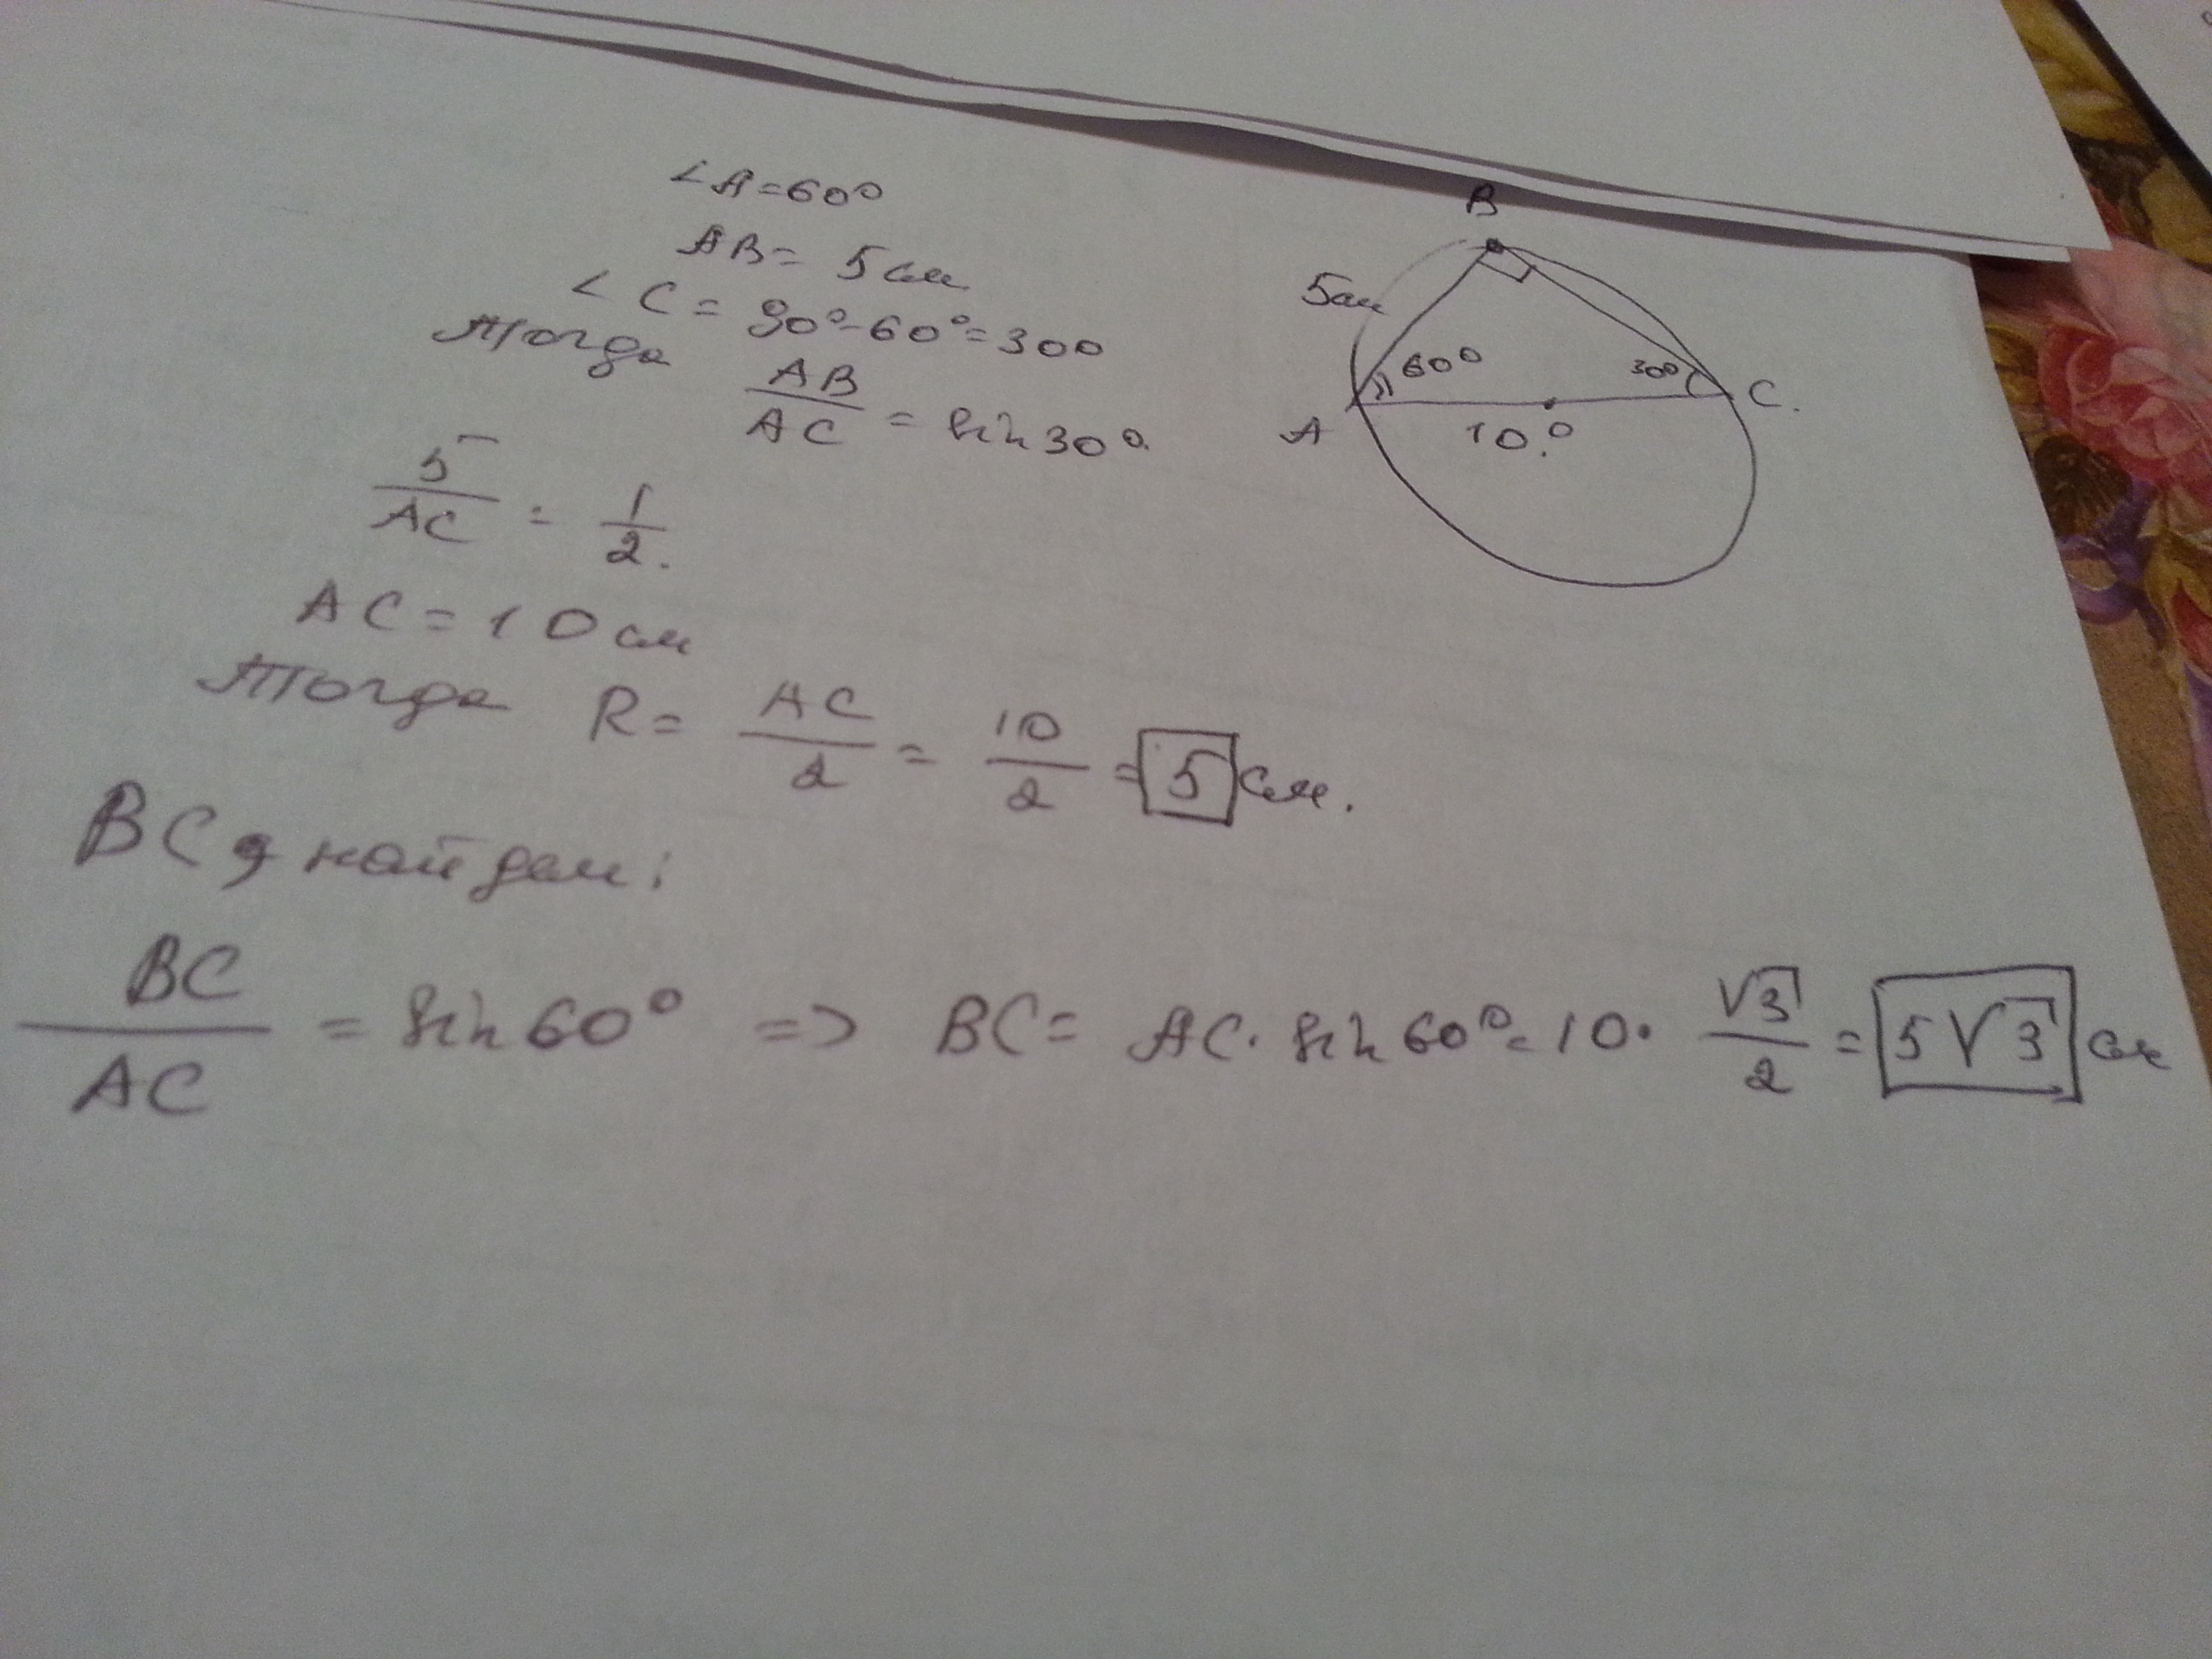 ∠A=60°
AB= 5см
∠C= 90°-60°=30°
Тогда AB/AC = sin30°.
5/AC = 1/2.
AC=10см
Тогда R= AC/2 = 10/2 = 5 см.
BC найдем:
BC/AC = sin60° => BC= AC·sin60°=10·√3/2=5√3 см
B
5см
60°
30°
A
C.
10